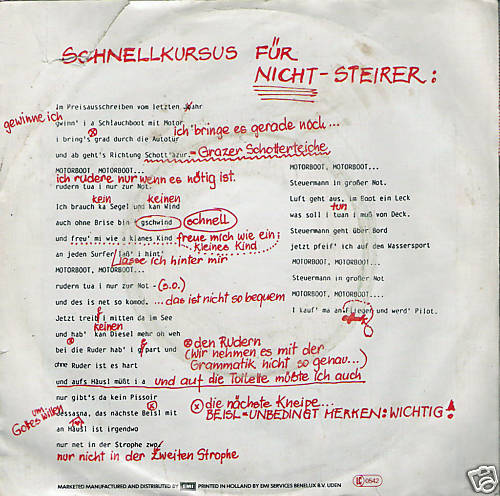 SCHNELLKURSUS FÜR
NICHT-STEIRER:
Im Preisausschreiben vom letzten Jahr
gewinne ich
gwinn' i a Schlauchboot mit Motor
i bring's grad durch die Autotür
ich bringe es gerade noch...
und ab geht's Richtung Schott'azur. = Grazer Schotterteiche
MOTORBOOT, MOTORBOOT...
ich rudere nur wenn es nötig ist.
rudern tua i nur zur Not.
kein keinen
Ich brauch ka Segel und kan Wind
auch ohne Brise bin i gschwind schnell
und freu' mi wie a klanes Kind freue mich wie ein kleines Kind
an jeden Surfer laß' i hint'
lasse ich hinter mir
MOTORBOOT, MOTORBOOT...
rudern tua i nur zur Not - (s.o.)
und des is net so komod. ...das ist nicht so bequem
Jetzt treib i mitten da im See
keinen
und hab' kan Diesel mehr oh weh
bei die Ruder hab' i gpart und
den Rudern
(Wir nehmen es mit der Grammatik nicht so genau...)
ohne Ruder ist es hart
und aufs Häusl müßt i a und auf die Toilette müßte ich auch
nur gibt's da kein Pissoir
um Gottes Willen
Jessasna, das nächste Beisl mit
die nächste Kneipe...
BEISL = UNBEDINGT MERKEN: WICHTIG!
an Häusl ist irgendwo
nur net in der Strophe zwo,
nur nicht in der zweiten Strophe
MOTORBOOT, MOTORBOOT...
Steuermann in großer Not.
Luft geht aus, im Boot ein Leck
tun
was soll i tuan i muß von Deck.
Steuermann geht über Bord
jetzt pfeif' ich auf den Wassersport
MOTORBOOT, MOTORBOOT...
Steuermann in großer Not
MOTORBOOT, MOTORBOOT....
I kauf' ma an Flieger und werd' Pilot.
MARKETED MANUFACTURED AND DISTRIBUTED BY EMI PRINTED IN HOLLAND BY EMI SERVICES BENELUX B.V. UDEN
LC 0542